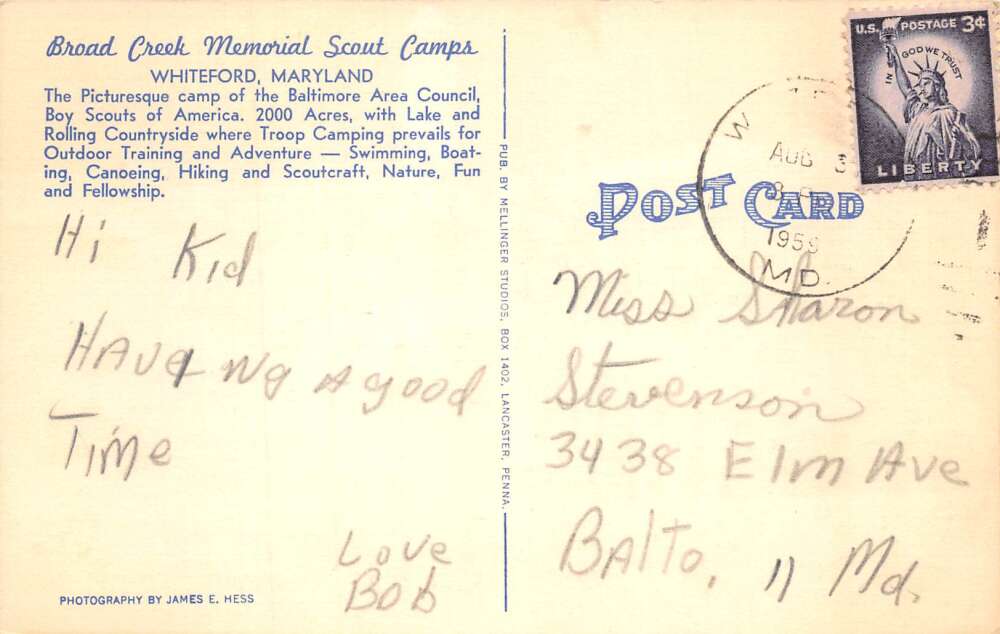 Broad Creek Memorial Scout Camps
WHITEFORD, MARYLAND
The Picturesque camp of the Baltimore Area Council,
Boy Scouts of America. 2000 Acres, with Lake and
Rolling Countryside where Troop Camping prevails for
Outdoor Training and Adventure — Swimming, Boat-
ing, Canoeing, Hiking and Scoutcraft, Nature, Fun
and Fellowship.
Hi Kid
HAVING A good
Time
Love
Bob
PHOTOGRAPHY BY JAMES E. HESS
PUB. BY MELLINGER STUDIOS, BOX 1402, LANCASTER, PENNA.
U.S. POSTAGE 3¢
IN GOD WE TRUST
LIBERTY
AUG 3
MD.
POST CARD
Miss Sharon
Stevenson
3438 Elm Ave
BAlTo, 11 Md.